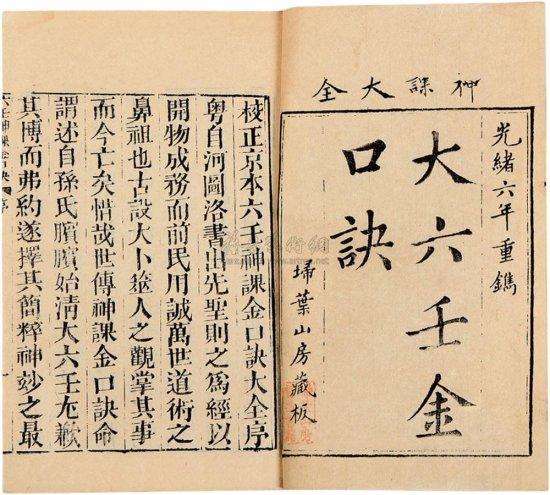 神課大全
光緒六年重鐫
大六壬金
口訣
埽葉山房藏板
校正京本六壬神課金口訣大全序
粵自河圖洛書出先聖則之為經以
開物成務而前民用誠萬世道術之
鼻祖也古設大卜筮人之觀掌其事
而今亡矣惜哉世傳神課金口訣命
謂述自孫氏臏臏始淸大六壬尢歉
其博而弗約遂擇其簡粹神妙之最
六壬神課金口訣 序